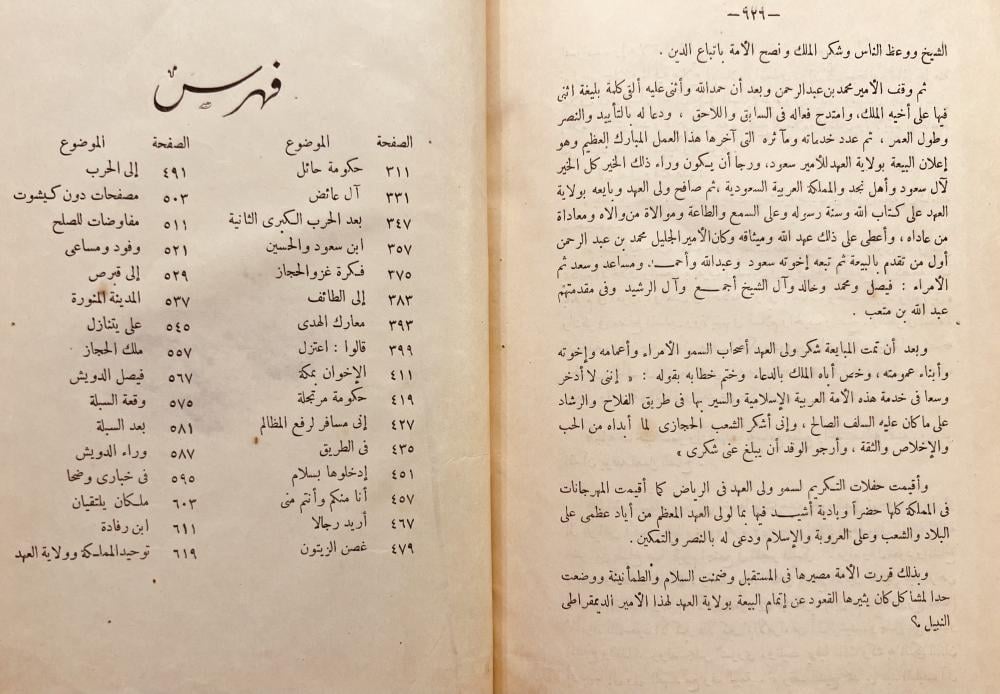 —٩٢٦—
الشيخ ووعظ الناس وشكر الملك ونصح الأمة باتباع الدين .
ثم وقف الأمير محمد بن عبد الرحمن وبعد أن حمد الله وأثنى عليه ألقى كلمة بليغة اثنى
فيها على أخيه الملك، وامتدح فعاله فى السابق واللاحق ، ودعا له بالتأييد والنصر
وطول العمر ، ثم عدد خدماته ومآثره التى آخرها هذا العمل المبارك العظيم وهو
إعلان البيعة بولاية العهد للأمير سعود، ورجا أن يكون وراء ذلك الخير كل الخير
لآل سعود وأهل نجد والمملكة العربية السعودية ،ثم صافح ولى العهد وبايعه بولاية
العهد على كتاب الله وسنة رسوله وعلى السمع والطاعة وموالاة من والاه ومعاداة
من عاداه ، وأعطى على ذلك عهد الله وميثاقه وكان الأمير الجليل محمد بن عبد الرحمن
أول من تقدم بالبيعة ثم تبعه إخوته سعود وعبدالله وأحمد ومساعد وسعد ثم
الأمراء : فيصل ومحمد وخالد وآل الشيخ أجمع وآل الرشيد وفى مقدمتهم
عبد الله بن متعب .
وبعد أن تمت المبايعة شكر ولى العهد أصحاب السمو الأمراء وأعمامه وإخوته
وأبناء عمومته ، وخص أباه الملك بالدعاء وختم خطابه بقوله : « إننى لا أدخر
وسعا فى خدمة هذه الأمة العربية الإسلامية والسير بها فى طريق الفلاح والرشاد
على ماكان عليه السلف الصالح ، وإنى أشكر الشعب الحجازى لما أبداه من الحب
والإخلاص والثقة ، وأرجو الوفد أن يبلغ عنى شكرى »
وأقيمت حفلات التكريم لسمو ولى العهد فى الرياض كما أقيمت المهرجانات
فى المملكة كلها حضراً وبادية أشيد فيها بما لولى العهد المعظم من أياد عظمى على
البلاد والشعب وعلى العروبة والإسلام ودعى له بالنصر والتمكين .
وبذلك قررت الأمة مصيرها فى المستقبل وضمنت السلام والطمأنينة ووضعت
حدا لمشاكل كان يثيرها القعود عن إتمام البيعة بولاية العهد لهذا الأمير الديمقراطى
النبيل ؟
فهرس
الصفحة الموضوع
٣١١ حكومة حائل
٣٣١ آل عائض
٣٤٧ بعد الحرب الكبرى الثانية
٣٥٧ ابن سعود والحسين
٣٧٥ فكرة غزو الحجاز
٣٨٣ إلى الطائف
٣٩٣ معارك الهدى
٣٩٩ قالوا : اعتزل
٤١١ الإخوان بمكة
٤١٩ حكومة مرتجلة
٤٢٧ إنى مسافر لرفع المظالم
٤٣٥ فى الطريق
٤٥١ إدخلوها بسلام
٤٥٧ أنا منكم وأنتم منى
٤٦٧ أريد رجالا
٤٧٩ غصن الزيتون
الصفحة الموضوع
٤٩١ إلى الحرب
٥٠٣ مصفحات دون كيشوت
٥١١ مفاوضات للصلح
٥٢١ وفود ومساعى
٥٢٩ إلى قبرص
٥٣٧ المدينة المنورة
٥٤٥ على يتنازل
٥٥٧ ملك الحجاز
٥٦٧ فيصل الدويش
٥٧٥ وقعة السبلة
٥٨١ بعد السبلة
٥٨٧ وراء الدويش
٥٩٥ فى خبارى وضحا
٦٠٣ ملكان يلتقيان
٦١١ ابن رفادة
٦١٩ توحيد المملكة وولاية العهد